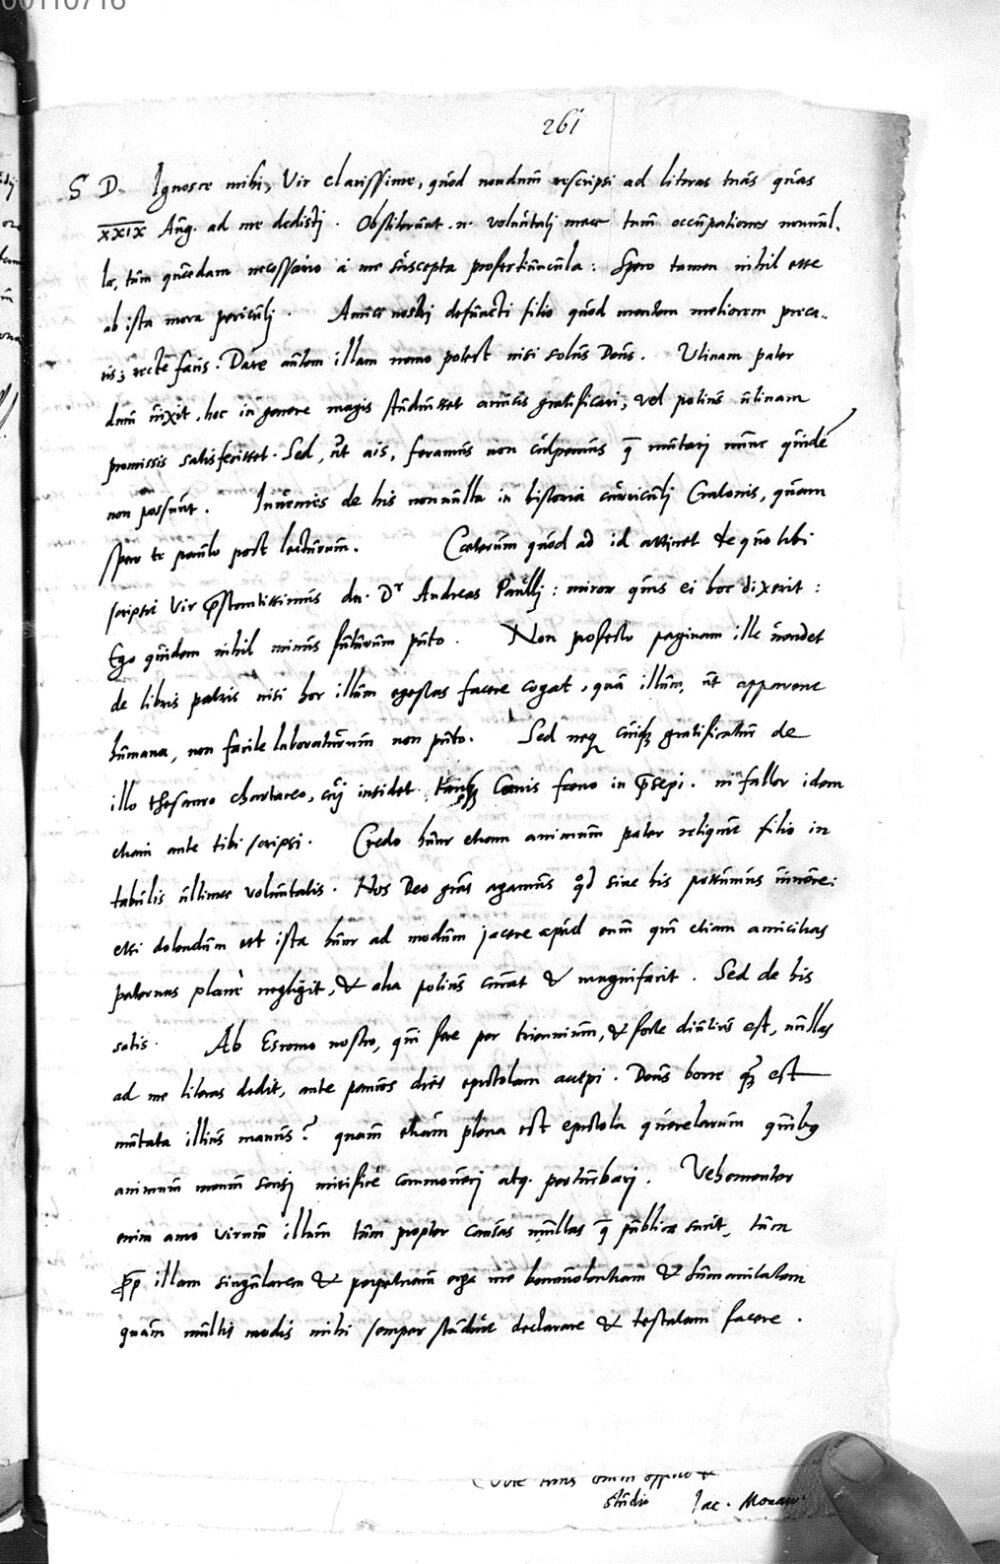 00110716
261
S D. Ignosce mihi, Vir clarissime, quod nondum rescripsi ad literas tuas quas
XXIX Aug. ad me dedistj. Obstiterunt .n. voluntatj meae tum occupationes nonnul-
lae, tum quaedam necessario a me suscepta profectiuncula: Spero tamen nihil esse
ab ista mora periculj. Amici nostrj defuncti filio quod mentem meliorem preca-
ris; recte facis. Dare autem illam nemo potest nisi solus Deus. Utinam pater
dum uixit, hoc in genere magis studuisset amicis gratificari, vel potius utinam
promissis satisfecisset. Sed, ut ais, feramus non culpemus q mutarj nunc quidē
non possunt. Inuenies de his nonnulla in historia curriculj Cratonis, quam
spero te paulo post lecturum. Caeterum quod ad id attinet de quo tibi
scripsit Vir pstantissimus dn. Dr Andreas Paullj: miror quis ei hoc dixerit:
Ego quidem nihil minus futurum puto. Non profecto paginam ille uendet
de libris patris nisi hoc illum egestas facere cogat, quā illum, ut apparent
humana, non facile laboraturum non puto. Sed neq cuiq gratificatur de
illo thesauro chartaceo, cuj insidet tanq Canis foeno in psepi. nj fallor idem
etiam ante tibi scripsi. Credo hunc etiam animum pater reliquit filio in
tabulis ultimae voluntatis. Nos Deo gras agamus qd sine his possumus uiuere:
etsi dolendum est ista hunc ad modum jacere apud eum qui etiam amicitias
paternas plane negligit, & alia potius curat & magnifacit. Sed de his
satis. Ab Esromo nostro, qui fere per triennium, & forte diutius est, nullas
ad me literas dedit, ante paucos dies epistolam accepi. Deus bone q est
mutata illius manus? quam etiam plena est epistola querelarum quibus
animum meum sensi mirifice commouerj atq. perturbarj. Vehementer
enim amo virum illum tum propter causas multas q publicae sunt, tum
pp illam singularem & perpetuam erga me beneuolentiam & humanitatem
quam multis modis mihi semper studuit declarare & testatam facere.
tuus omni officio &
studio Jac. Monaw.